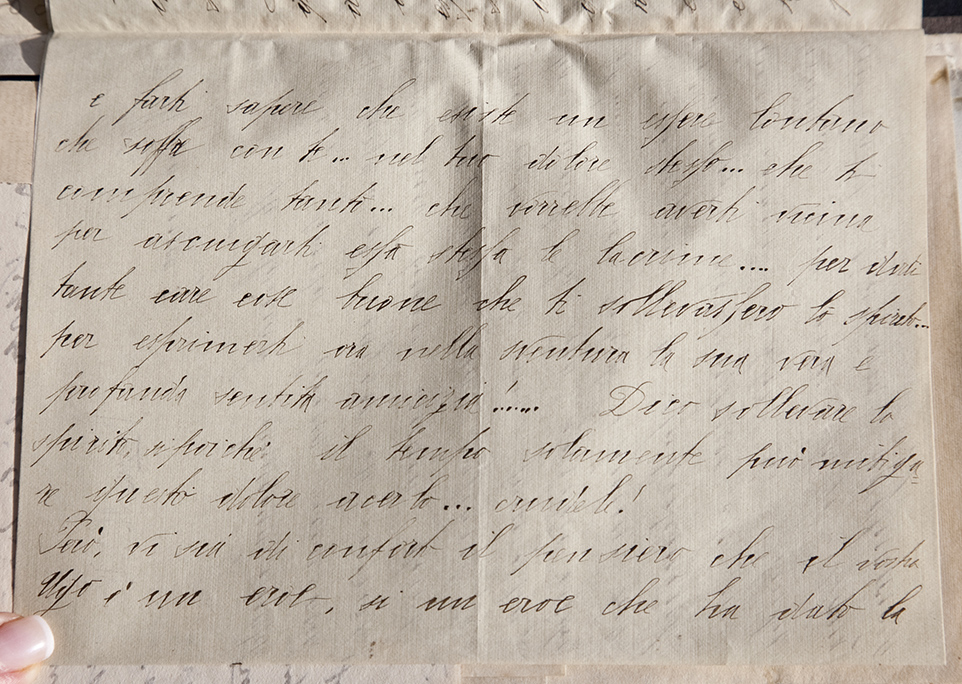 e farti sapere che esiste un essere lontano
che soffre con te... nel tuo dolore stesso... che ti
comprende tanto... che vorrebbe averti vicina
per asciugarti essa stessa le lacrime.... per darti
tante care cose buone che ti sollevassero lo spirito...
per esprimerti ora nella sventura la sua vera e
profonda sentita amicizia...... Dico sollevare lo
spirito, sì poiché il tempo solamente può mitiga=
re questo dolore acerbo... crudele!
Però, vi sia di conforto il pensiero che il vostro
Ugo è un eroe, si un eroe che ha dato la